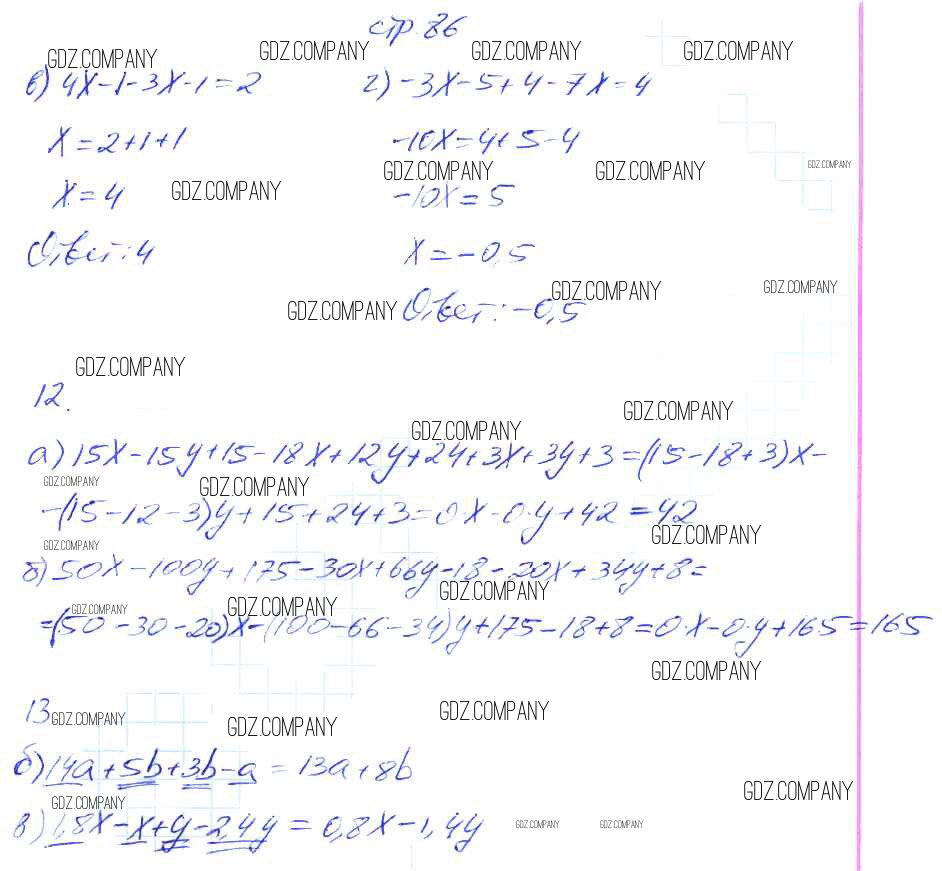 стр. 86
GDZ.COMPANY GDZ.COMPANY GDZ.COMPANY GDZ.COMPANY
в) 4x-1-3x-1=2 г) -3x-5+4-7x=4
x=2+1+1 -10x=4+5-4
GDZ.COMPANY GDZ.COMPANY GDZ.COMPANY
x=4 GDZ.COMPANY -10x=5
Ответ: 4 x=-0,5
GDZ.COMPANY GDZ.COMPANY
GDZ.COMPANY Ответ: -0,5
GDZ.COMPANY
12.
GDZ.COMPANY
GDZ.COMPANY
а) 15x-15y+15-18x+12y+24+3x+3y+3=(15-18+3)x-
GDZ.COMPANY GDZ.COMPANY
-(15-12-3)y+15+24+3=0·x-0·y+42=42
GDZ.COMPANY GDZ.COMPANY
б) 50x-100y+175-30x+66y-18-20x+34y+8=
GDZ.COMPANY GDZ.COMPANY GDZ.COMPANY
=(50-30-20)x-(100-66-34)y+175-18+8=0·x-0·y+165=165
GDZ.COMPANY
13 GDZ.COMPANY GDZ.COMPANY GDZ.COMPANY
б) 14a+5b+3b-a=13a+8b
GDZ.COMPANY GDZ.COMPANY
в) 1,8x-x+y-2,4y=0,8x-1,4y GDZ.COMPANY GDZ.COMPANY